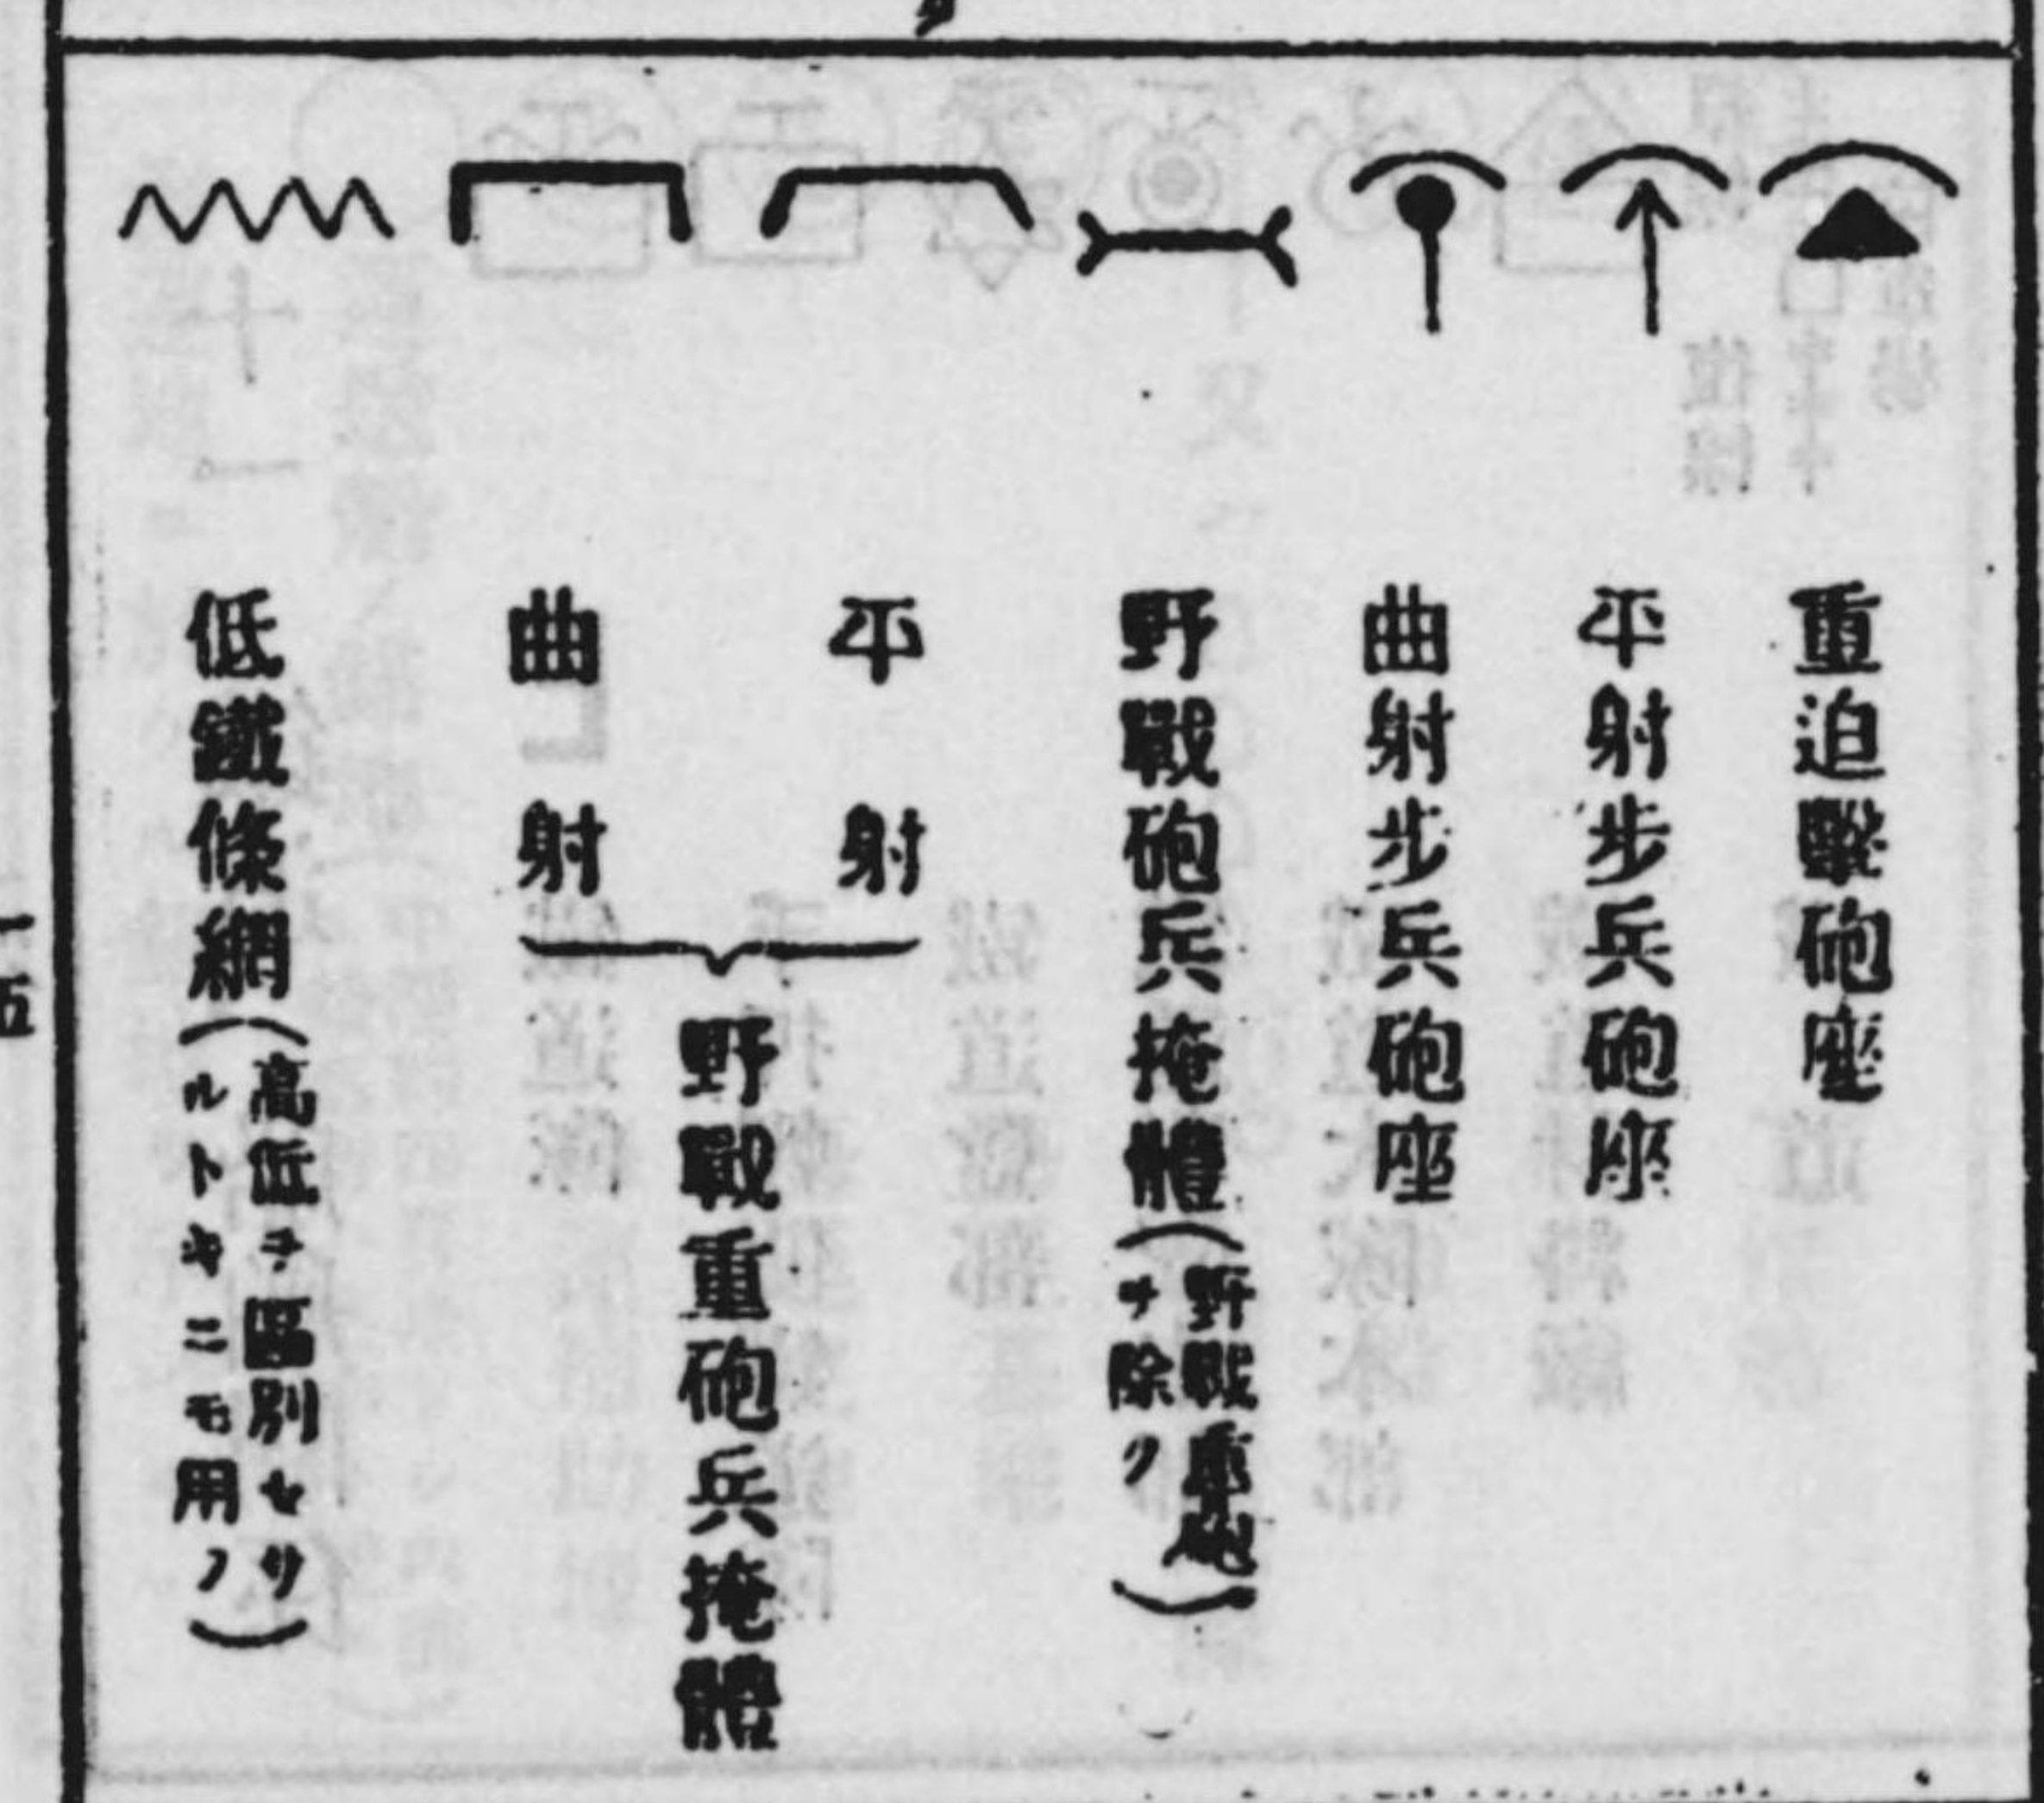 重迫擊砲座
平射步兵砲座
曲射步兵砲座
野戰砲兵掩體(野戰重砲
ヲ除ク)
平射
曲射
野戰重砲兵掩體
低鐵條網(高低ヲ區別セサ
ルトキニモ用フ)
一五